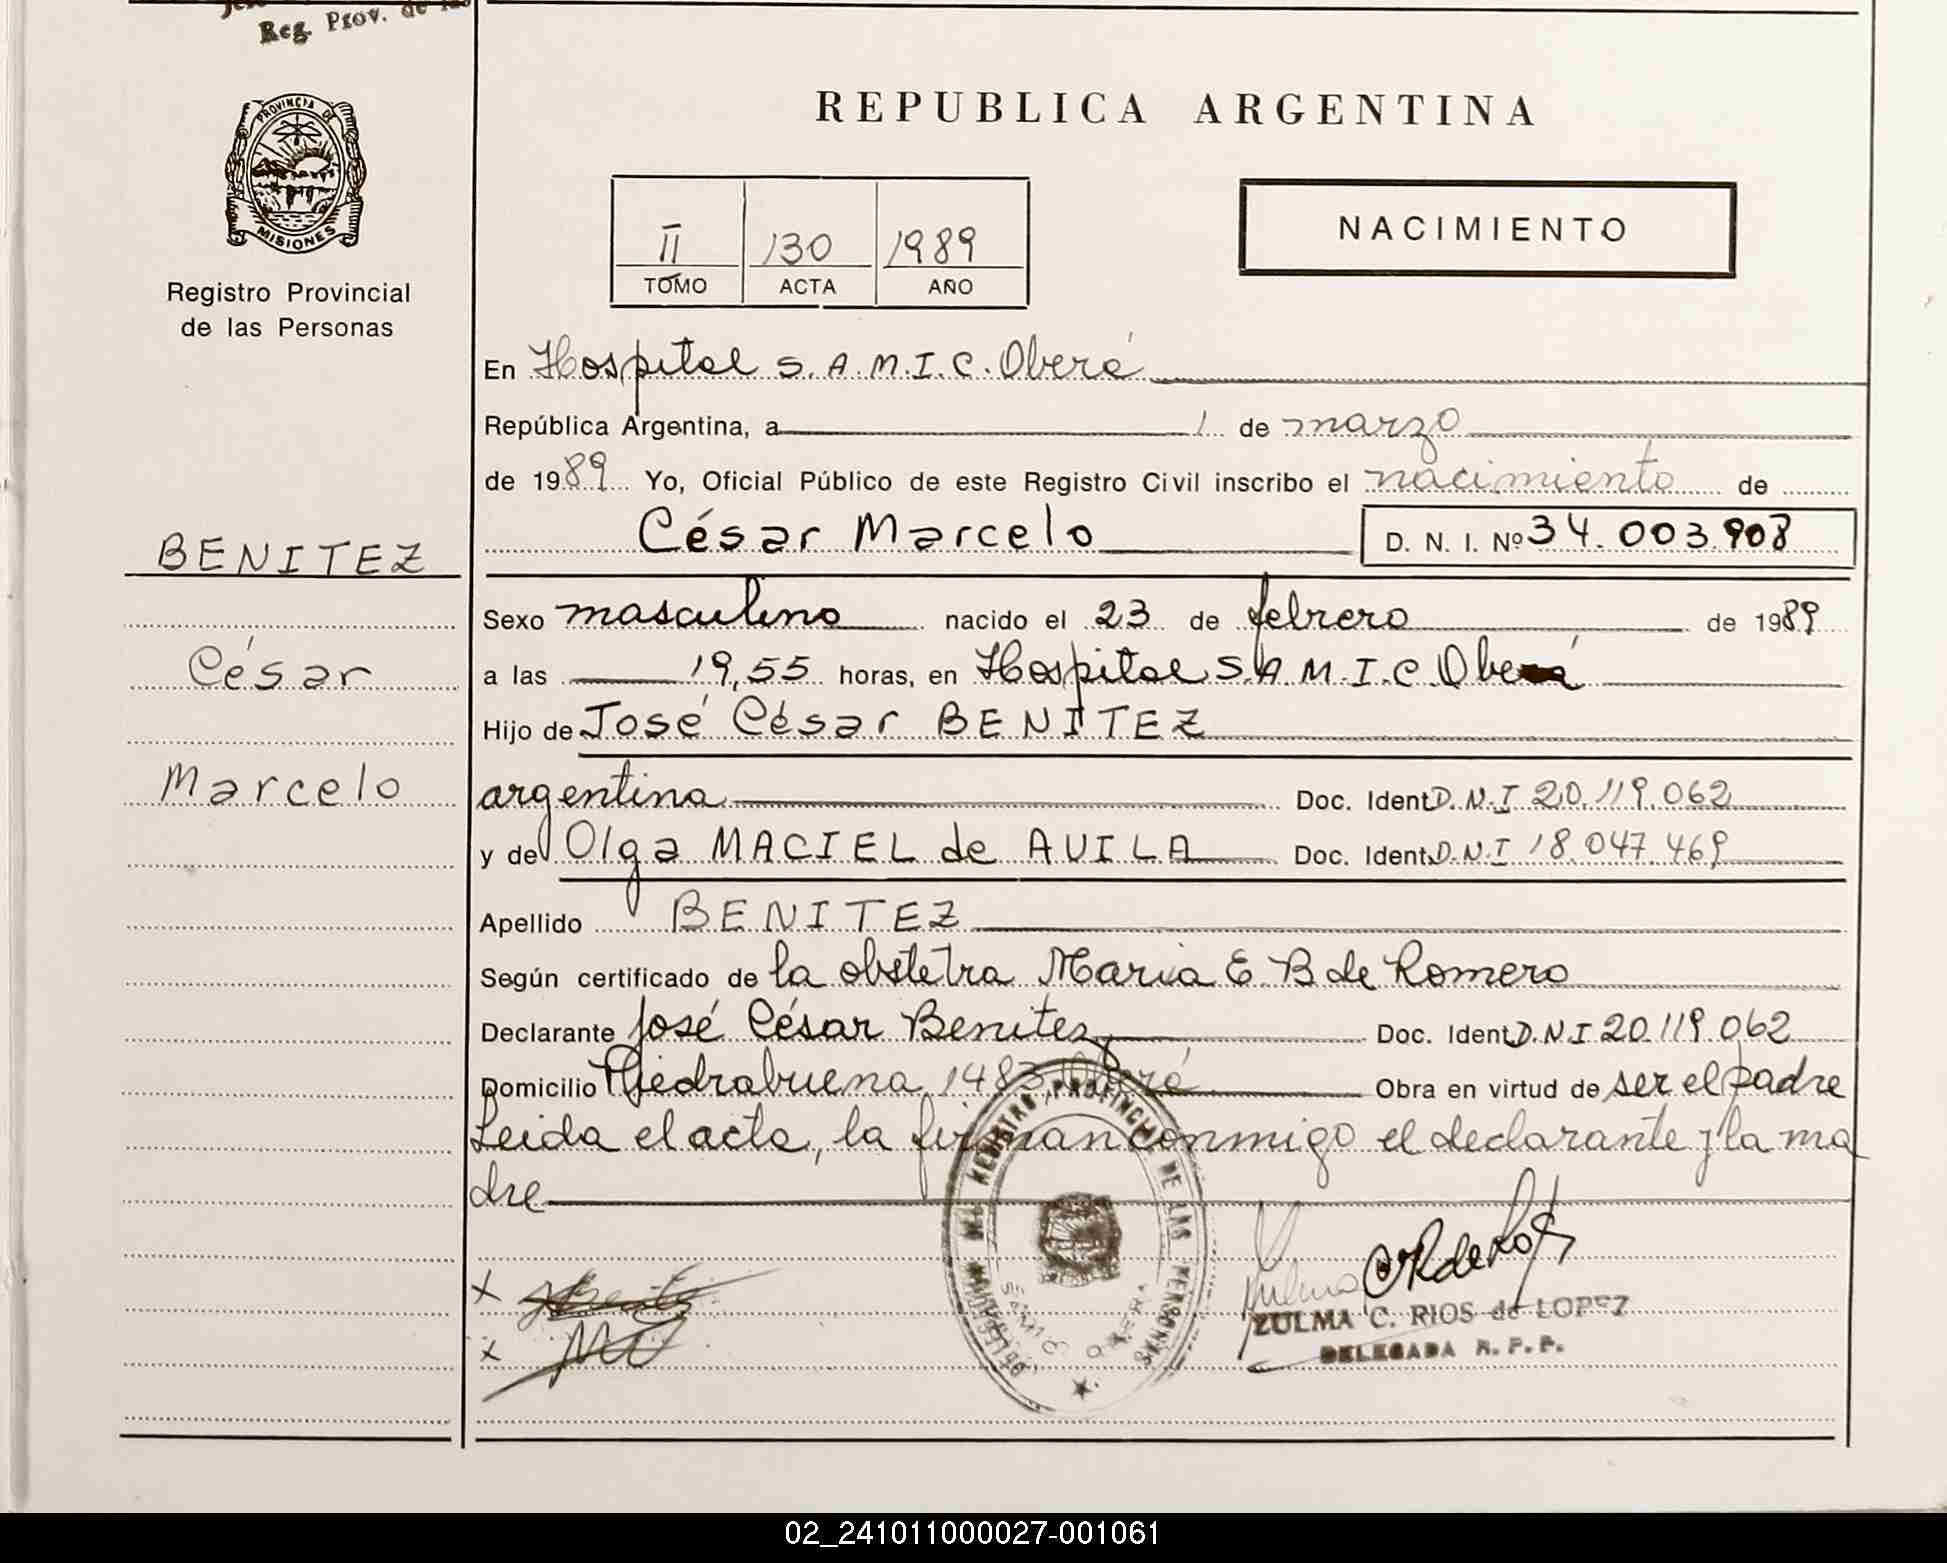 Reg. Prov. de las
PROVINCIA DE
MISIONES
Registro Provincial
de las Personas
BENITEZ
César
Marcelo
REPUBLICA ARGENTINA
II 130 1989
TOMO ACTA AÑO
NACIMIENTO
En Hospital S.A.M.I.C. Oberá
República Argentina, a 1 de marzo
de 1989 Yo, Oficial Público de este Registro Civil inscribo el nacimiento de
César Marcelo D. N. I. Nº 34.003.908
Sexo masculino nacido el 23 de febrero de 1989
a las 19,55 horas, en Hospital S.A.M.I.C. Oberá
Hijo de José César BENITEZ
argentina Doc. Ident. D.N.I 20.119.062
y de Olga MACIEL de AVILA Doc. Ident. D.N.I 18.047.469
Apellido BENITEZ
Según certificado de la obstetra Maria E. B de Romero
Declarante José César Benitez Doc. Ident. D.N.I 20.119.062
Domicilio Piedrabuena 1483 Oberá Obra en virtud de ser el padre
Leida el acta, la firman conmigo el declarante y la ma
dre
x
x
DEL REGISTRO PROVINCIAL DE LAS PERSONAS
ZULMA C. RIOS de LOPEZ
DELEGADA R. P. P.
02_241011000027-001061